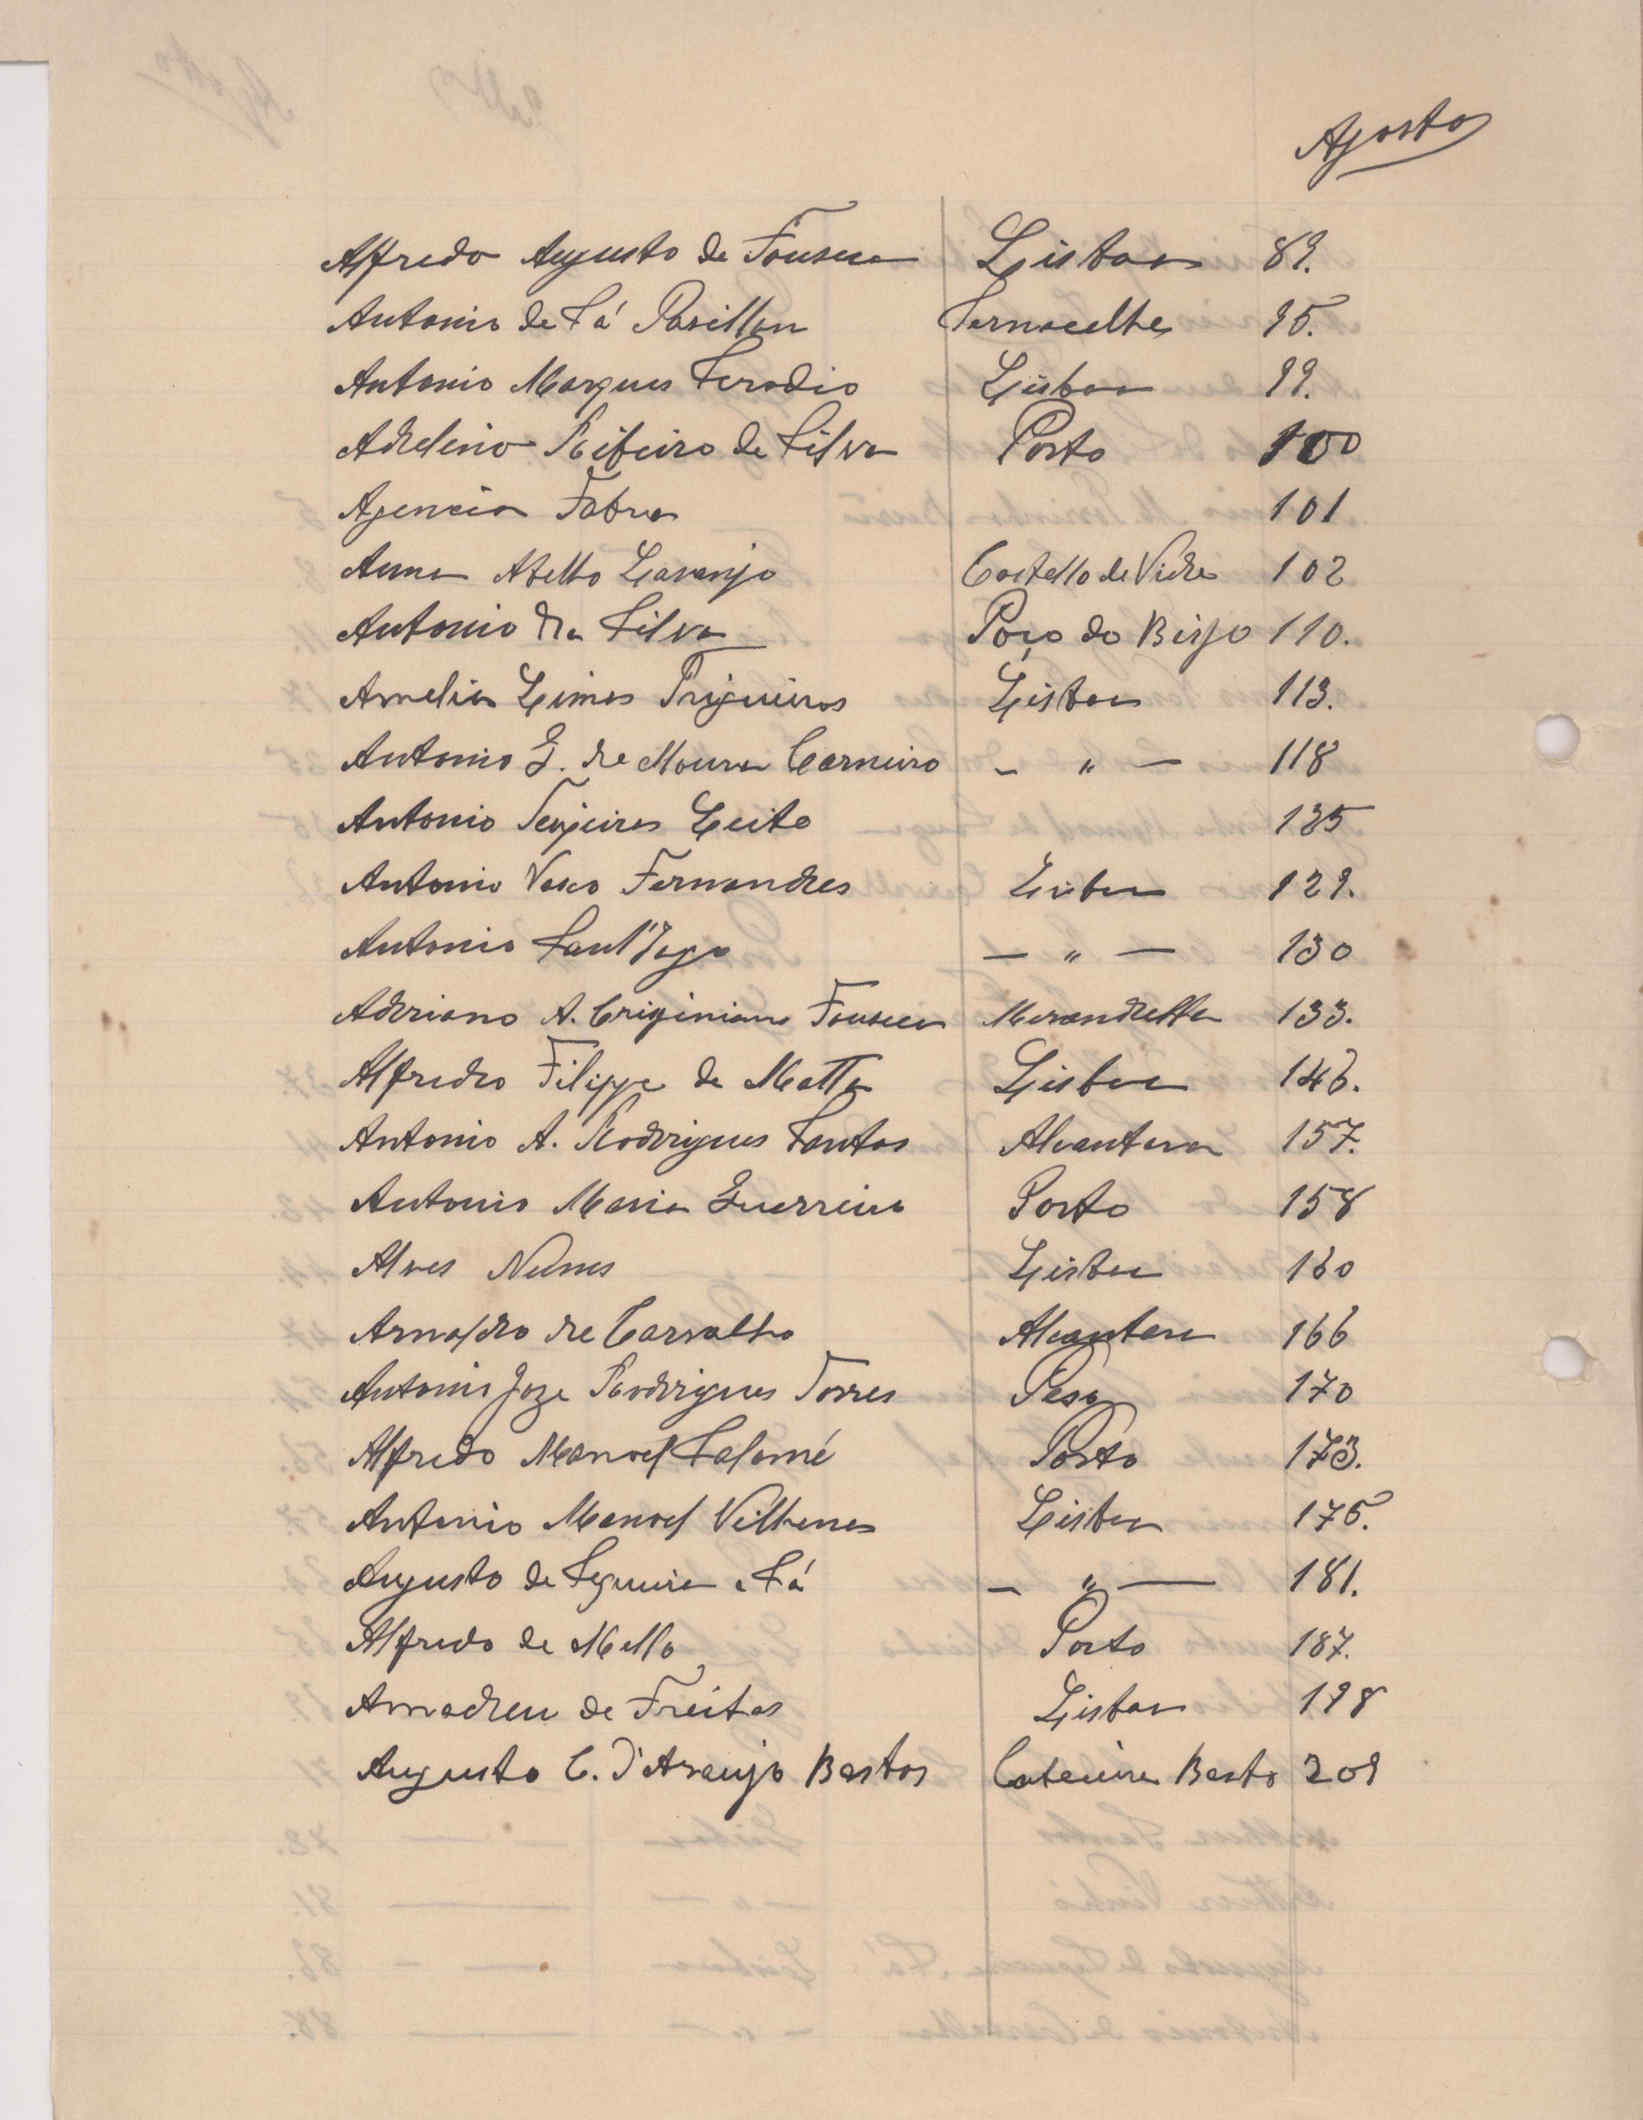 Agosto
Alfredo Augusto da Fonseca Lisboa 89.
Antonio de Sá Pavillon Sernacelhe 95.
Antonio Marques Serodio Lisboa 99.
Adelino Ribeiro da Silva Porto 100
Agencia Fabra 101
Anna Abelho Laranjo Castello de Vide 102
Antonio da Silva Poço do Bispo 110.
Amelia Limas Trigueiros Lisboa 113.
Antonio G. de Moura Carneiro - " - 118
Antonio Teixeira Leite 125
Antonio Vasco Fernandes Lisboa 129.
Antonio Sant'Iago - " - 130
Adriano A. Crispiniano Fonseca Mirandella 133.
Alfredo Filippe da Matta Lisboa 146.
Antonio A. Rodrigues Santos Alcantara 157.
Antonio Maria Guerreiro Porto 158
Alves Nunes Lisboa 160
Arnaldo de Carvalho Alcantara 166
Antonio Joze Rodrigues Torres Peso 170
Alfredo Manoel Salomé Porto 173.
Antonio Manoel Vilhena Lisboa 176.
Augusto de Sequeira e Sá - " - 181.
Alfredo de Mello Porto 187.
Amadeu de Freitas Lisboa 198
Augusto C. d'Araujo Bastos Cabeceiras Basto 209